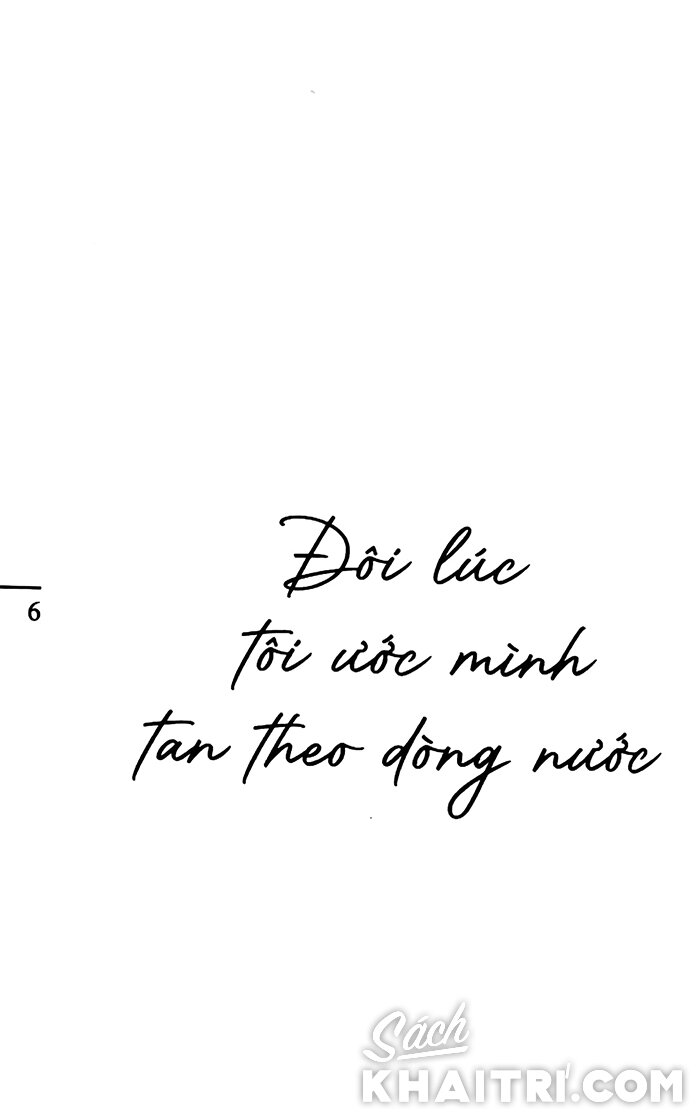 Đôi lúc
6
tôi ước mình
tan theo dòng nước
Sách
KHAITRI.COM